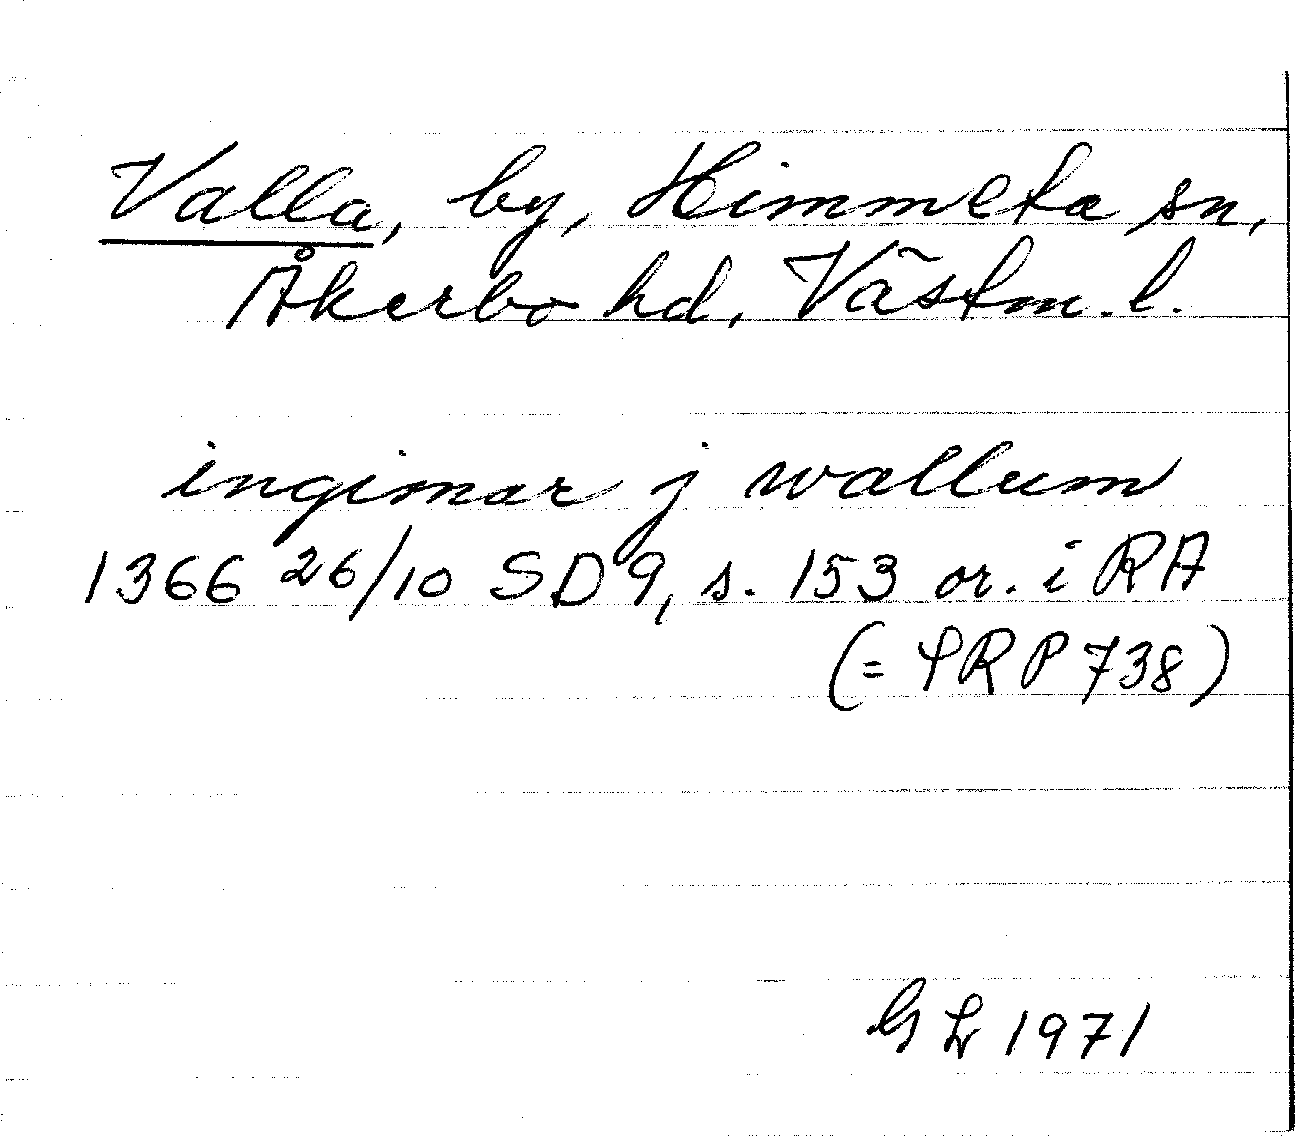 Valla, by, Himmeta sn,
Åkerbo hd, Västm. l.
ingimar j wallum
1366 26/10 SD 9, s. 153 or. i RA
(= SRP 738)
GL 1971